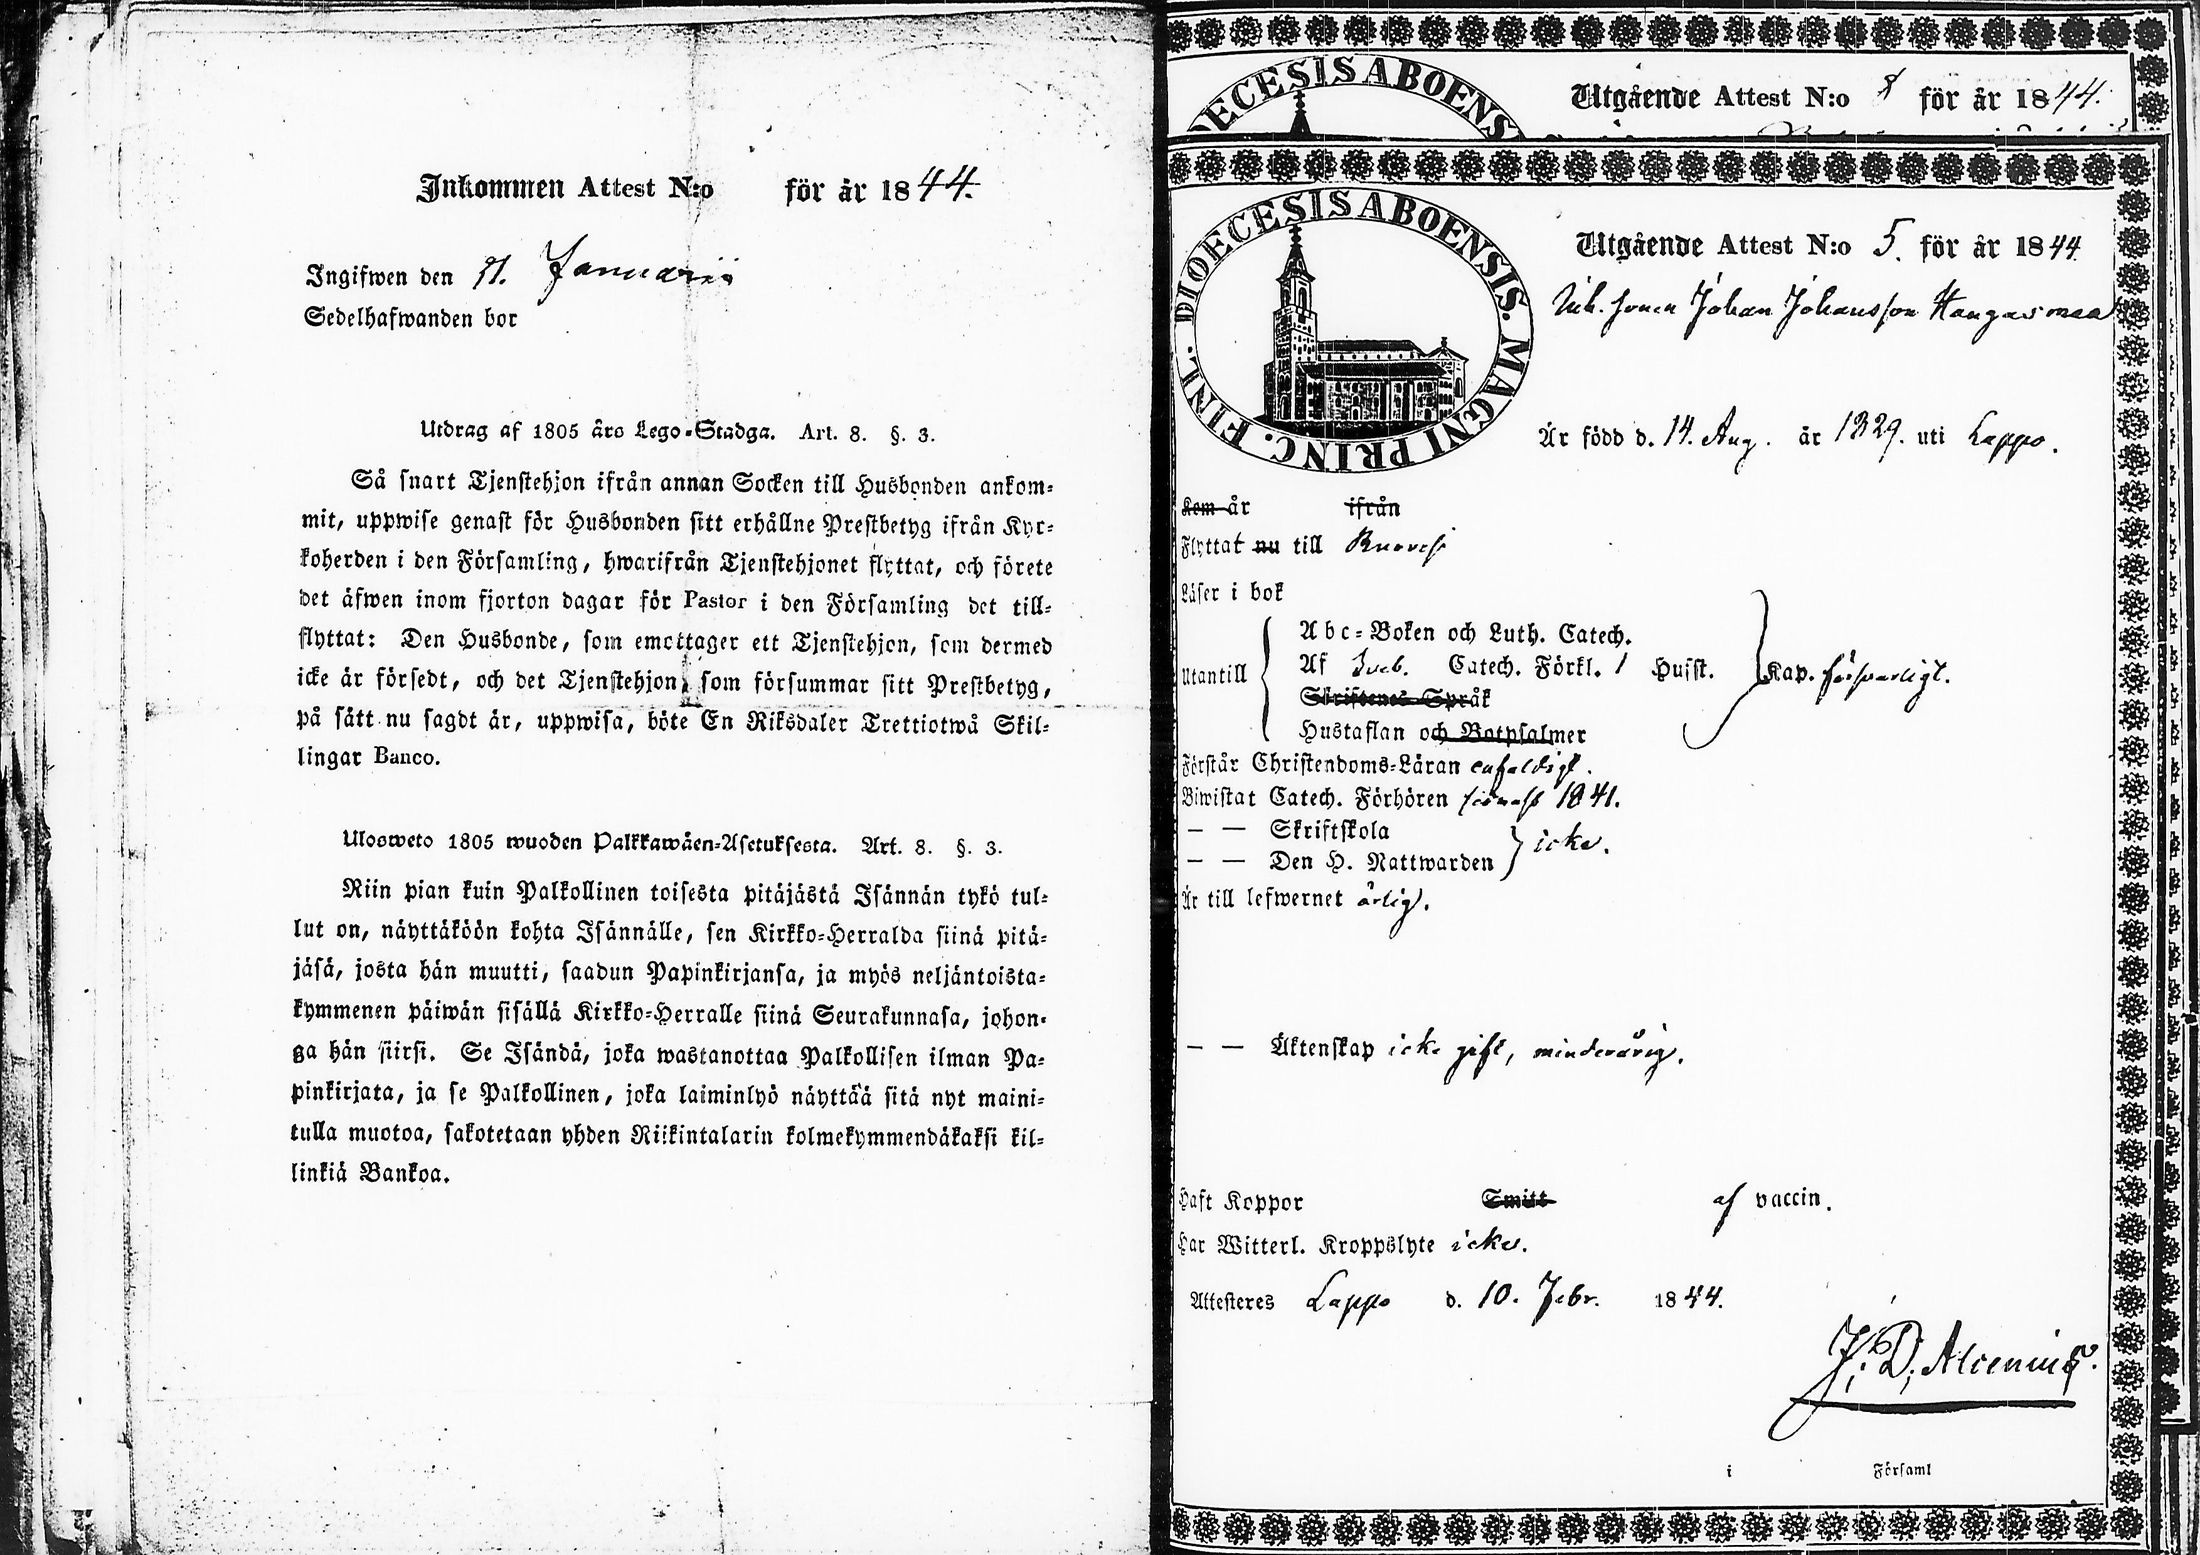 Inkommen Attest N:o för år 1844.
Ingifwen den 31. Januarii
Sedelhafwanden bor
Utdrag af 1805 års Lego-Stadga. Art. 8. §. 3.
Så snart Tjenstehjon ifrån annan Socken till Husbonden ankom-
mit, uppwise genast för Husbonden sitt erhållne Prestbetyg ifrån Kyr-
koherden i den Församling, hwarifrån Tjenstehjonet flyttat, och förete
det äfwen inom fjorton dagar för Pastor i den Församling det till-
flyttat: Den Husbonde, som emottager ett Tjenstehjon, som dermed
icke är försedt, och det Tjenstehjon, som försummar sitt Prestbetyg,
på sätt nu sagdt är, uppwisa, böte En Riksdaler Trettiotwå Skil-
lingar Banco.
Ulosweto 1805 wuoden Palkkawäen-Asetuksesta. Art. 8. §. 3.
Niin pian kuin Palkollinen toisesta pitäjästä Isännän tykö tul-
lut on, näyttäköön kohta Isännälle, sen Kirkko-Herralda siinä pitä-
jäsä, josta hän muutti, saadun Papinkirjansa, ja myös neljäntoista-
kymmenen päiwän sisällä Kirkko-Herralle siinä Seurakunnasa, johon-
ga hän siirsi. Se Isändä, joka wastanottaa Palkollisen ilman Pa-
pinkirjata, ja se Palkollinen, joka laiminlyö näyttää sitä nyt maini-
tulla muotoa, sakotetaan yhden Riikintalarin kolmekymmendäkaksi kil-
linkiä Bankoa.
DIOECESIS ABOENSIS
Utgående Attest N:o 8 för år 1844.
DIOECESIS ABOENSIS. MAGNI PRINC. FINL.
Utgående Attest N:o 5. för år 1844
Inh. sonen Johan Johansson Kangasmaa
Är född d. 14. Aug. år 1829. uti Lappo.
Kom år ifrån
Flyttat nu till Ruovesi
Läser i bok
Utantill
Abc-Boken och Luth. Catech.
Af Sveb. Catech. Förkl. 1 Husst. Kap. försvarligt.
Skriftenes Språk
Hustaflan och Botpsalmer
Förstår Christendoms-Läran enfaldigt.
Biwistat Catech. Förhören sednast 1841.
— — Skriftskola
— — Den H. Nattwarden icke.
Är till lefwernet ärlig.
— — Äktenskap icke gift, minderårig.
Haft Koppor Smitt af vaccin.
Har Witterl. Kroppslyte icke.
Attesteres Lappo d. 10. Febr. 1844.
J. D. Alcenius.
i Församl